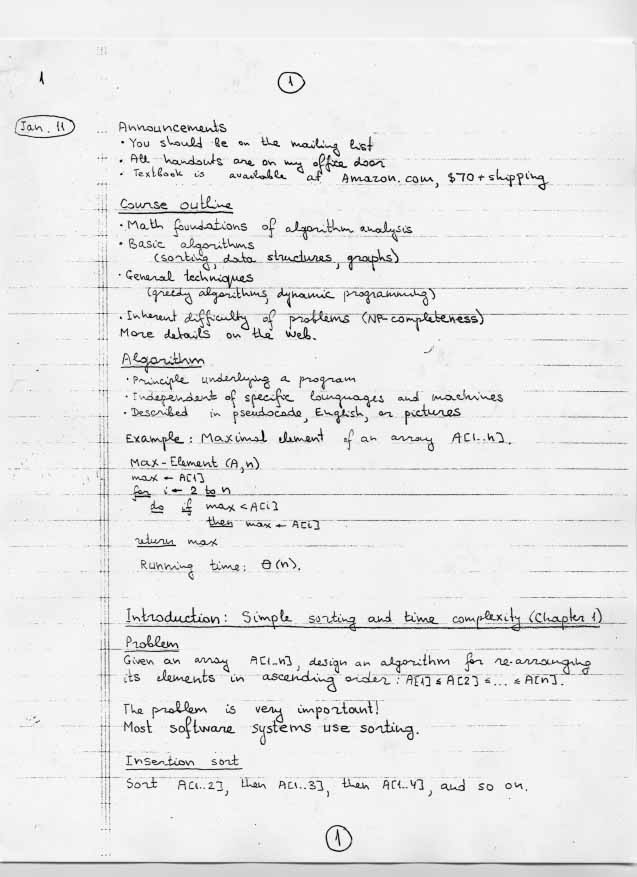 1
1
Jan. 11
Announcements
· You should be on the mailing list
· All handouts are on my office door
· Textbook is available at Amazon.com, $70 + shipping
Course outline
· Math foundations of algorithm analysis
· Basic algorithms
(sorting, data structures, graphs)
· General techniques
(greedy algorithms, dynamic programming)
· Inherent difficulty of problems (NP-completeness)
More details on the web.
Algorithm
· Principle underlying a program
· Independent of specific languages and machines
· Described in pseudocode, English, or pictures
Example: Maximal element of an array A[1..n].
Max-Element (A,n)
max ← A[1]
for i ← 2 to n
do if max < A[i]
then max ← A[i]
return max
Running time: Θ(n).
Introduction: Simple sorting and time complexity (Chapter 1)
Problem
Given an array A[1..n], design an algorithm for re-arranging
its elements in ascending order: A[1] ≤ A[2] ≤ ... ≤ A[n].
The problem is very important!
Most software systems use sorting.
Insertion sort
Sort A[1..2], then A[1..3], then A[1..4], and so on.
1